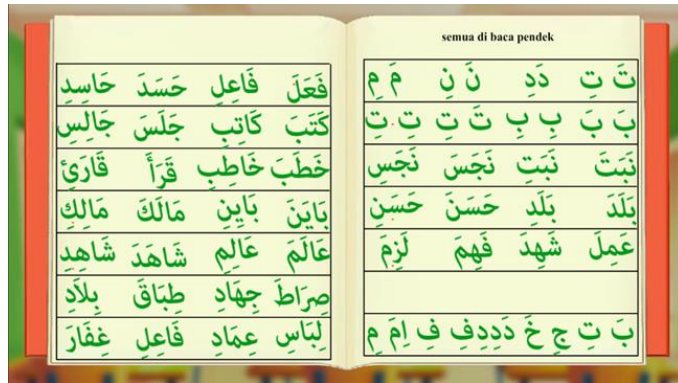 semua di baca pendek
تَ تِ دَدِ نَ نِ مَ مِ
بَ بَ بِ بِ تَ تِ تِ تِ
نَبَتَ نَبَتِ نَجَسَ نَجَسِ
بَلَدَ بَلَدِ حَسَنَ حَسَنِ
عَمِلَ شَهِدَ فَهِمَ لَزِمَ
بَ تِ جِ خَ دَدِدِفِ فِ اِمَ مِ
فَعَلَ فَاعِلِ حَسَدَ حَاسِدِ
كَتَبَ كَاتِبِ جَلَسَ جَالِسِ
خَطَبَ خَاطِبِ قَرَأَ قَارَئِ
بَايَنَ بَايِنِ مَالَكَ مَالِكِ
عَالَمَ عَالِمِ شَاهَدَ شَاهِدِ
صِرَاطَ جِهَادِ طِبَاقَ بِلَادِ
لِبَاسِ عِمَادِ فَاعِلِ غِفَارَ